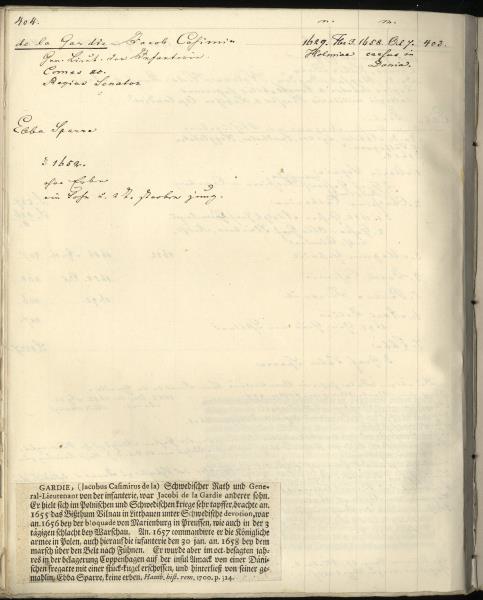 404.
n. m.
de la Gardie Jacob Casimir 1629. 1658. Oct 7. 403.
Gen. Lieut. der Infanterie Holmiae caesus in
Comes Dania.
Regius Senator
Ebba Sparre
1652.
ohne Erben
ein Sohn u. 2 T. starben jung.
GARDIE, (Jacobus Casimirus de la) Schwedischer Rath und Gene-
ral-Lieutenant von der infanterie, war Jacobi de la Gardie anderer sohn.
Er hielt sich im Polnischen und Schwedischen kriege sehr tapffer, brachte an.
1655 das Bißthum Wilnau in Litthauen unter Schwedische devotion, war
an. 1656 bey der bloquade von Marienburg in Preussen, wie auch in der 3
tägigen schlacht bey Warschau. An. 1657 commandirte er die Königliche
armee in Polen, auch hierauf die infanterie den 30 jan. an. 1658 bey dem
marsch über den Belt nach Fühnen. Er wurde aber im oct. besagten jah-
res in der belagerung Coppenhagen auf der insul Amack von einer Däni-
schen fregatte mit einer stück-kugel erschossen, und hinterließ von seiner ge-
mahlin, Ebba Sparre, keine erben. Hamb. hist. rem. 1700. p. 324.